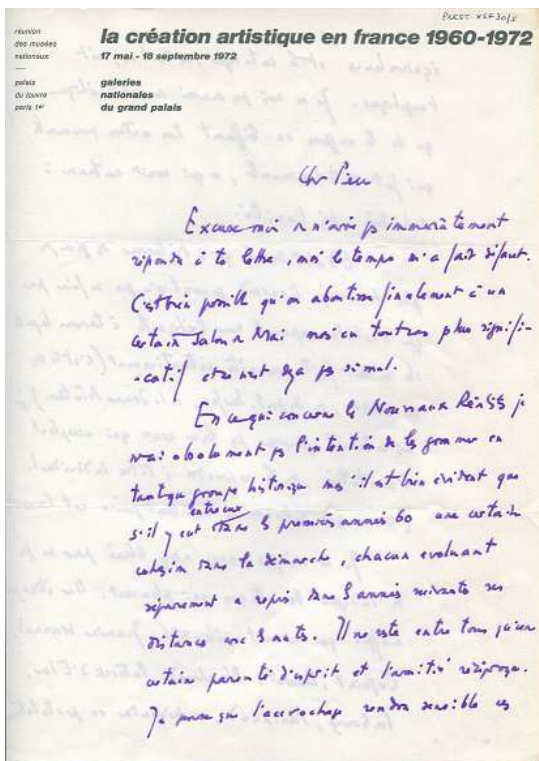 réunion
des musées
nationaux
la création artistique en france 1960-1972
17 mai - 18 septembre 1972
palais
du louvre
paris 1er
galeries
nationales
du grand palais
Cher Pierre
Excuse moi de n'avoir ps immédiatement
répondu à ta lettre, mais le temps m'a fait défaut.
C'est bien possible qu'on aboutisse finalement à un
certain Salon de Mai mais en tout cas plus signifi-
-catif et ce n'est déjà ps si mal.
En ce qui concerne les Nouveaux Réalistes je
n'ai absolument ps l'intention de les gommer en
tant que groupe historique mais il est bien évident que
s'il y eut entre eux dans les premières années 60 une certaine
cohésion dans la démarche, chacun évoluant
séparément a repris dans les années suivantes ses
distances avec les autres. Il ne reste entre tous qu'une
certaine parenté d'esprit et l'amitié réciproque.
Je pense que l'accrochage rendra sensible ces